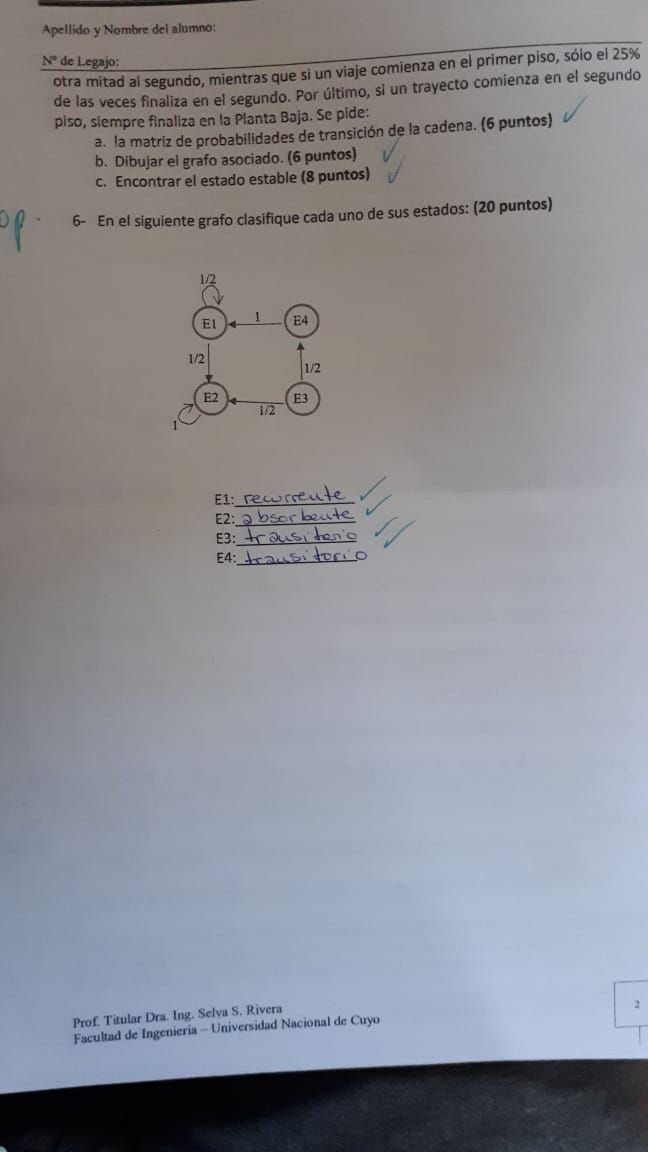 Apellido y Nombre del alumno:
Nº de Legajo:
otra mitad al segundo, mientras que si un viaje comienza en el primer piso, sólo el 25%
de las veces finaliza en el segundo. Por último, si un trayecto comienza en el segundo
piso, siempre finaliza en la Planta Baja. Se pide:
a. la matriz de probabilidades de transición de la cadena. (6 puntos)
b. Dibujar el grafo asociado. (6 puntos)
c. Encontrar el estado estable (8 puntos)
6- En el siguiente grafo clasifique cada uno de sus estados: (20 puntos)
1/2
E1 1 E4
1/2 1/2
E2 E3
1 1/2
E1: recurrente
E2: absorbente
E3: transitorio
E4: transitorio
Prof. Titular Dra. Ing. Selva S. Rivera
Facultad de Ingeniería – Universidad Nacional de Cuyo
2